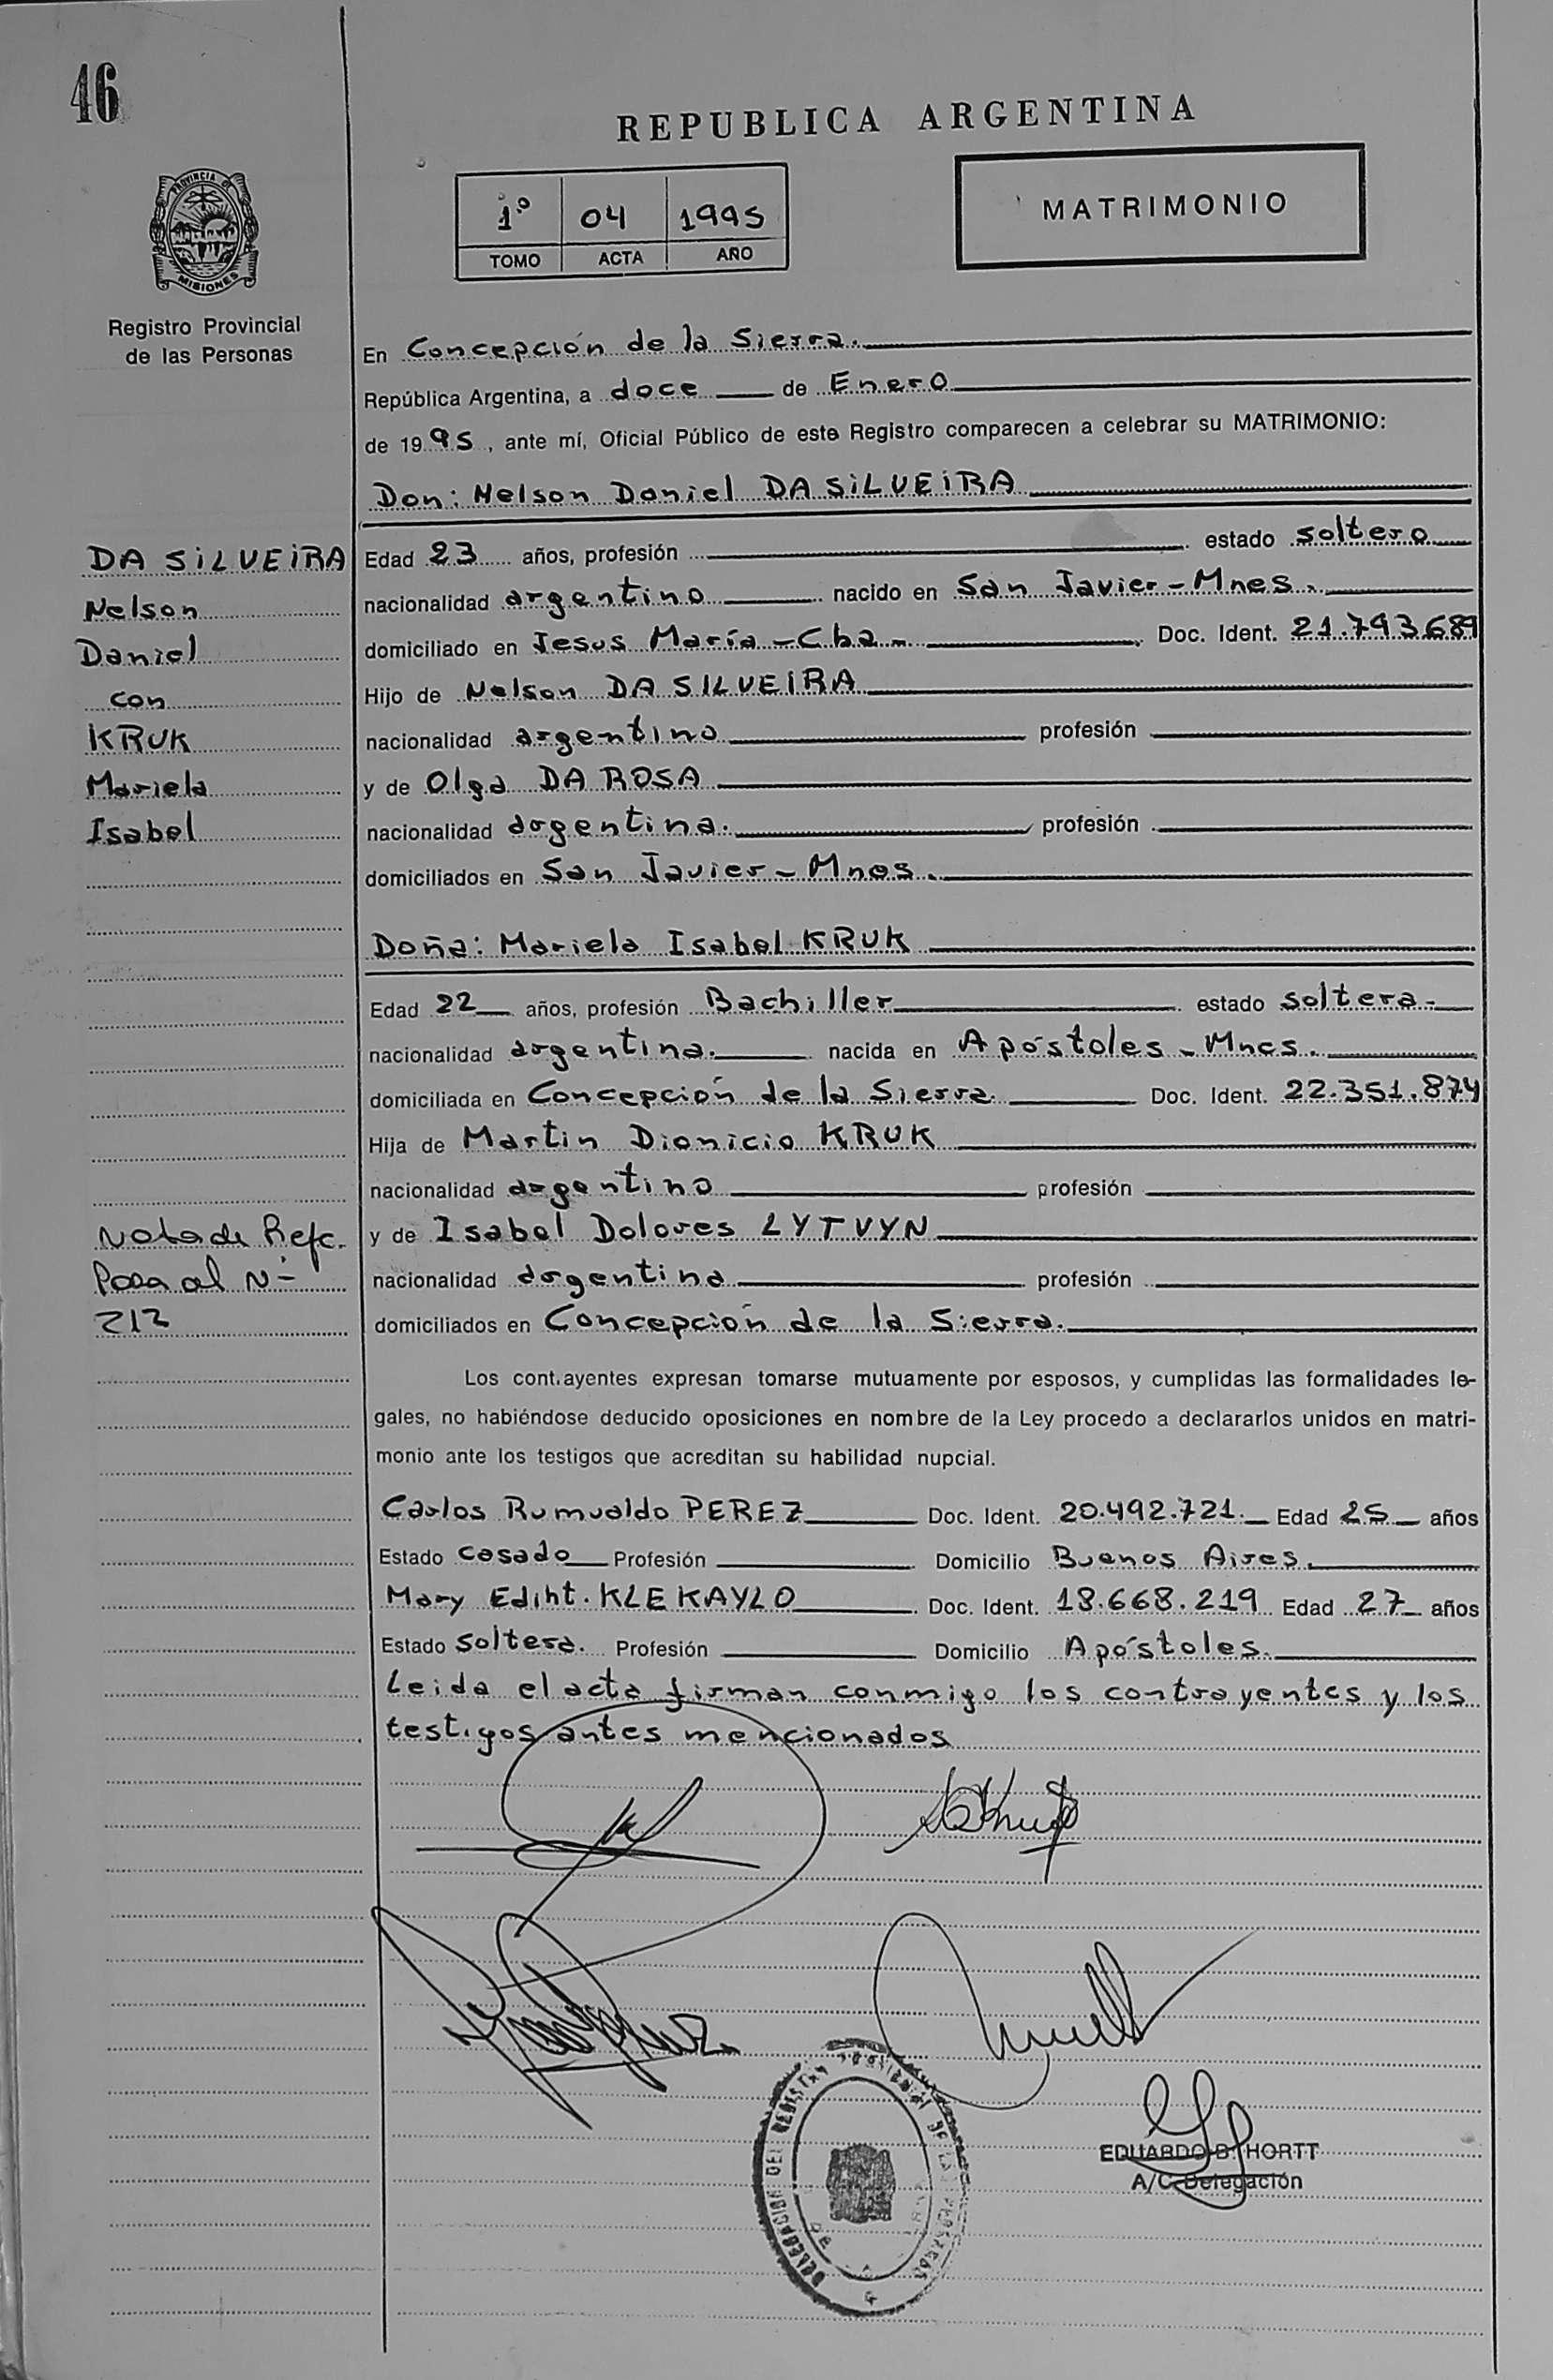 46
REPUBLICA ARGENTINA
1º 04 1995
TOMO ACTA AÑO
MATRIMONIO
PROVINCIA DE
MISIONES
Registro Provincial
de las Personas
En Concepción de la Sierra.
República Argentina, a doce de Enero
de 1995, ante mí, Oficial Público de este Registro comparecen a celebrar su MATRIMONIO:
Don: Nelson Daniel DA SILVEIRA
DA SILVEIRA
Nelson
Daniel
con
KRUK
Mariela
Isabel
Edad 23 años, profesión estado soltero
nacionalidad argentino nacido en San Javier - Mnes.
domiciliado en Jesus María - Cba - Doc. Ident. 21.793.689
Hijo de Nelson DA SILVEIRA
nacionalidad argentino profesión
y de Olga DA ROSA
nacionalidad argentina. profesión
domiciliados en San Javier - Mnes.
Doña: Mariela Isabel KRUK
Edad 22 años, profesión Bachiller estado soltera -
nacionalidad argentina. nacida en Apóstoles - Mnes.
domiciliada en Concepción de la Sierra Doc. Ident. 22.351.874
Hija de Martin Dionicio KRUK
nacionalidad argentino profesión
y de Isabel Dolores LYTVYN
nacionalidad argentina profesión
domiciliados en Concepción de la Sierra.
Nota de Refc.
Pasa al Nº
212
Los contrayentes expresan tomarse mutuamente por esposos, y cumplidas las formalidades le-
gales, no habiéndose deducido oposiciones en nombre de la Ley procedo a declararlos unidos en matri-
monio ante los testigos que acreditan su habilidad nupcial.
Carlos Rumualdo PEREZ Doc. Ident. 20.492.721. Edad 25 años
Estado casado Profesión Domicilio Buenos Aires.
Mary Ediht. KLEKAYLO Doc. Ident. 18.668.219 Edad 27 años
Estado soltera. Profesión Domicilio Apóstoles.
Leida el acta firman conmigo los contrayentes y los
testigos antes mencionados
EDUARDO B. HORTT
A/C Delegación
DELEGACION DEL REGISTRO PROVINCIAL DE LAS PERSONAS